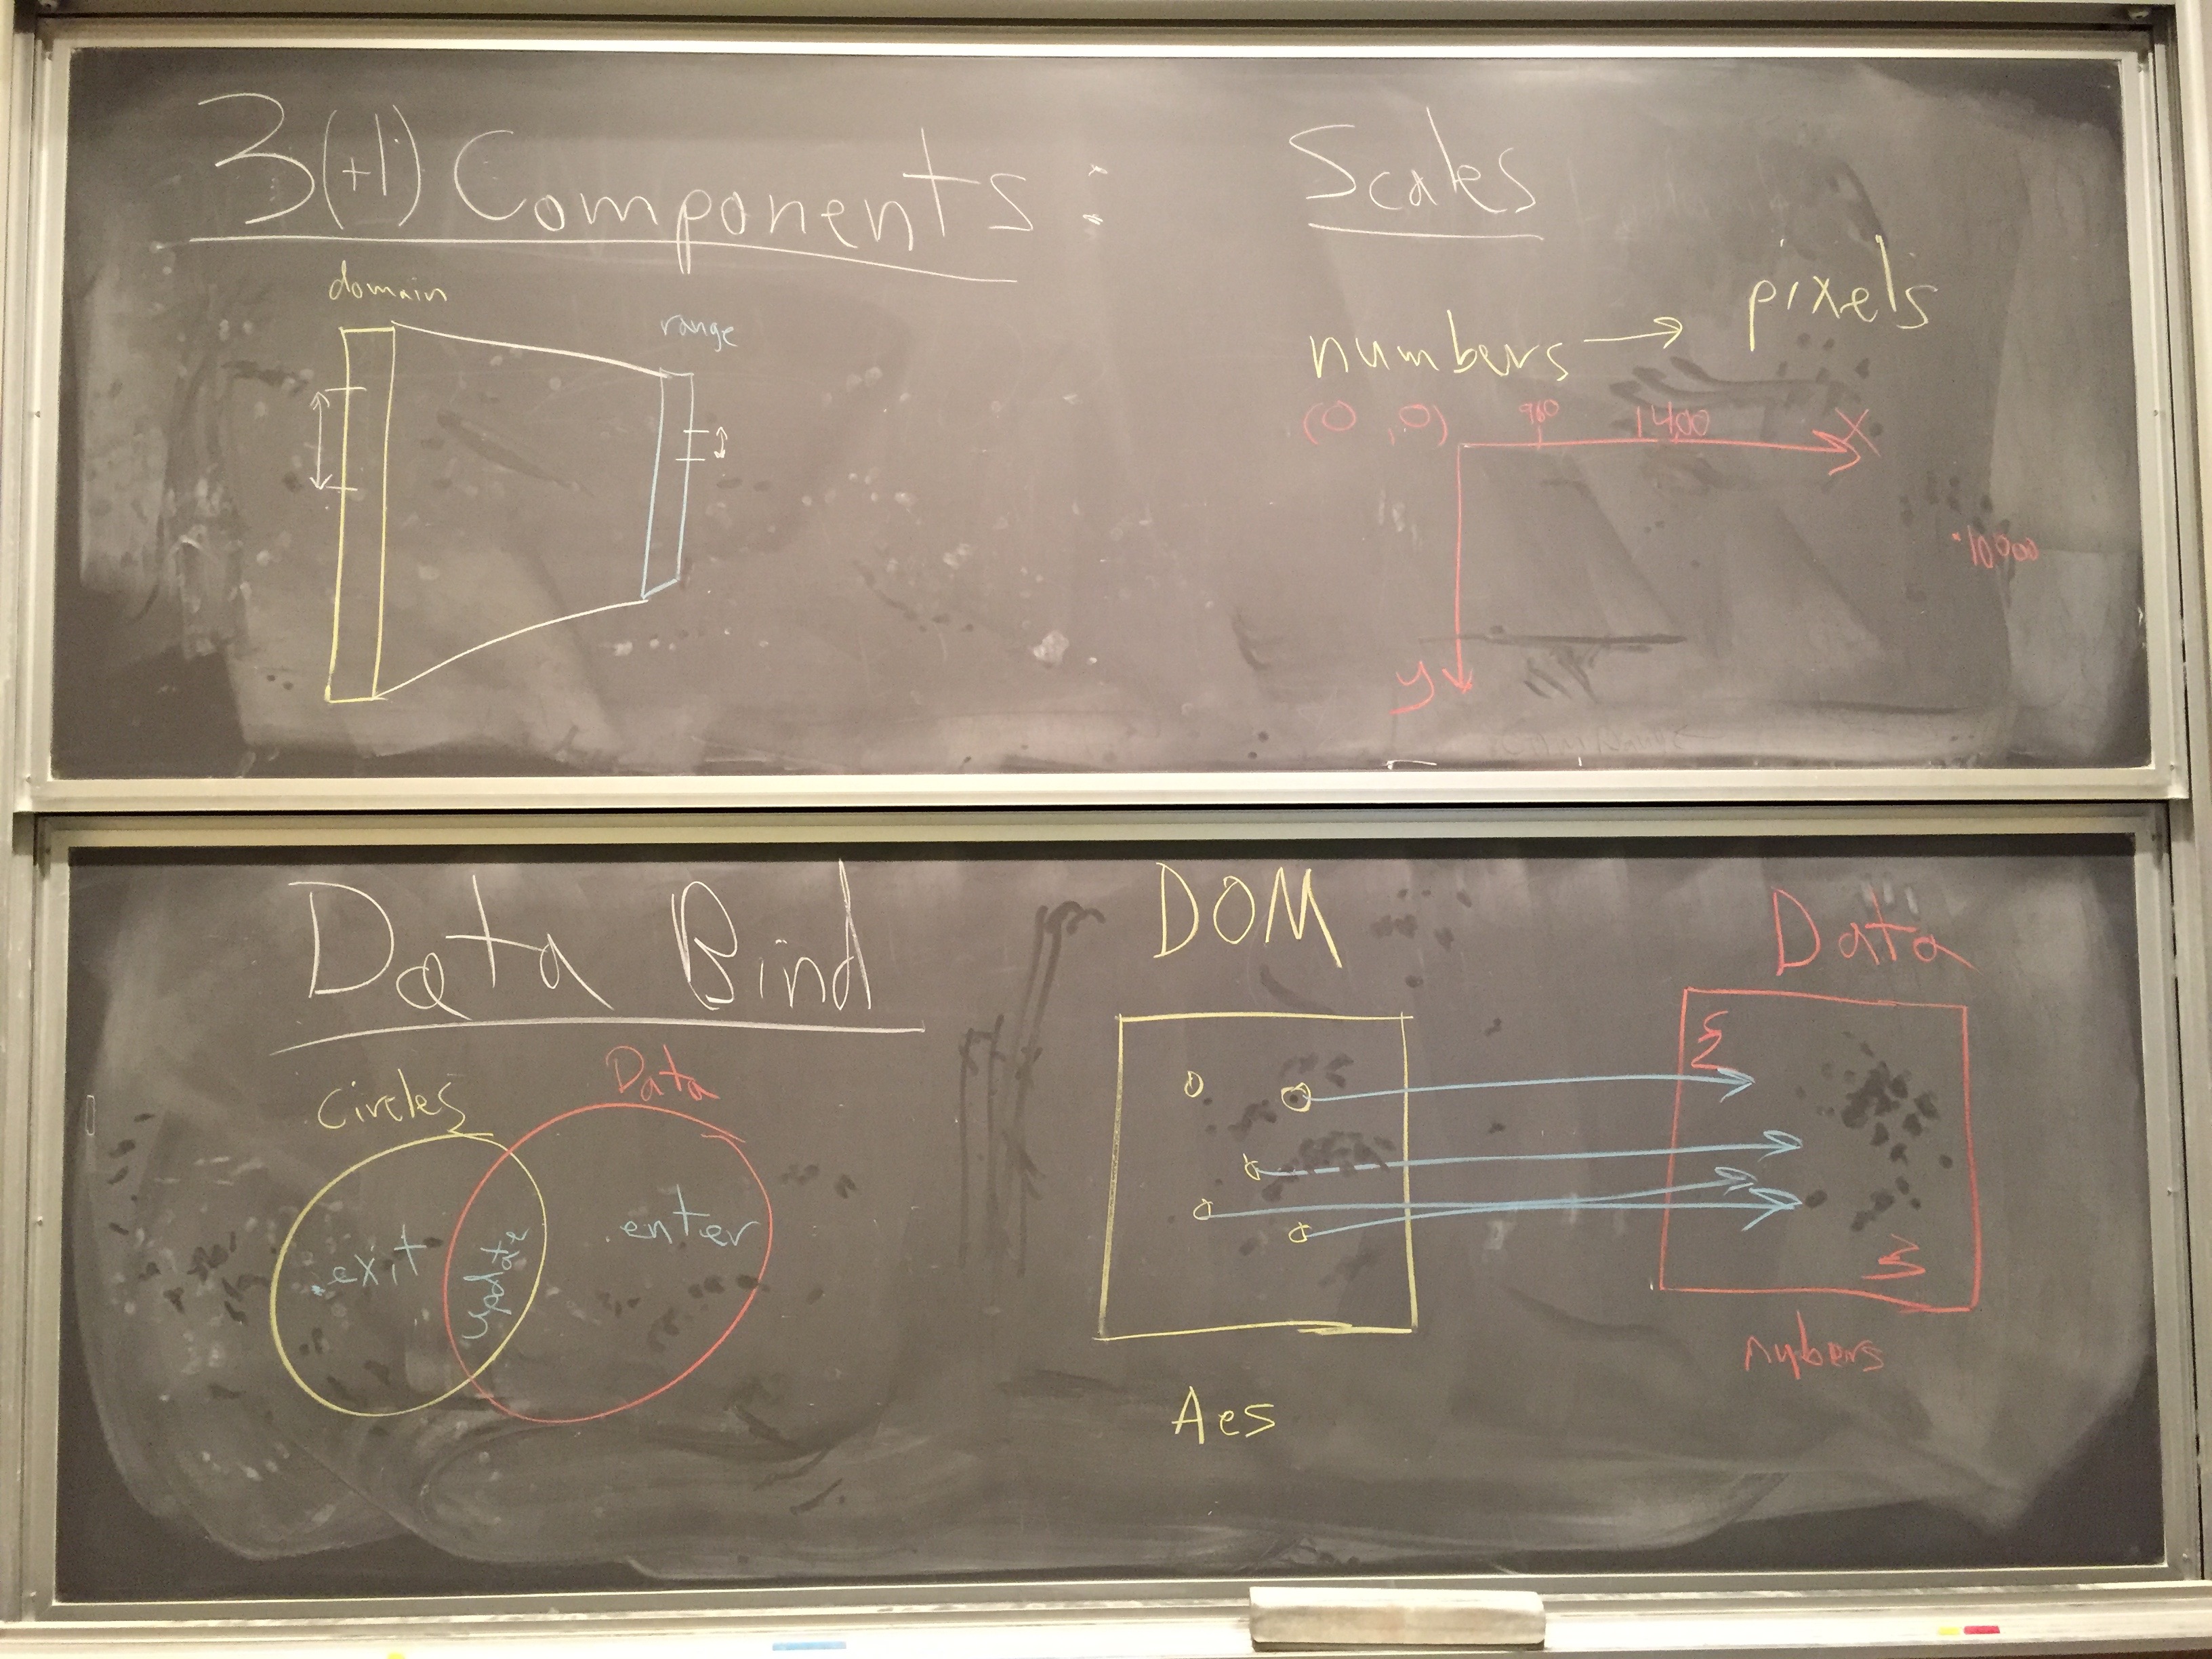 3(+1) Components:
domain
range
Scales
numbers → pixels
(0,0) 960 1400 X
10,000
y
Data Bind
Circles
Data
exit
update
enter
DOM
Data
{
}
nybers
Aes